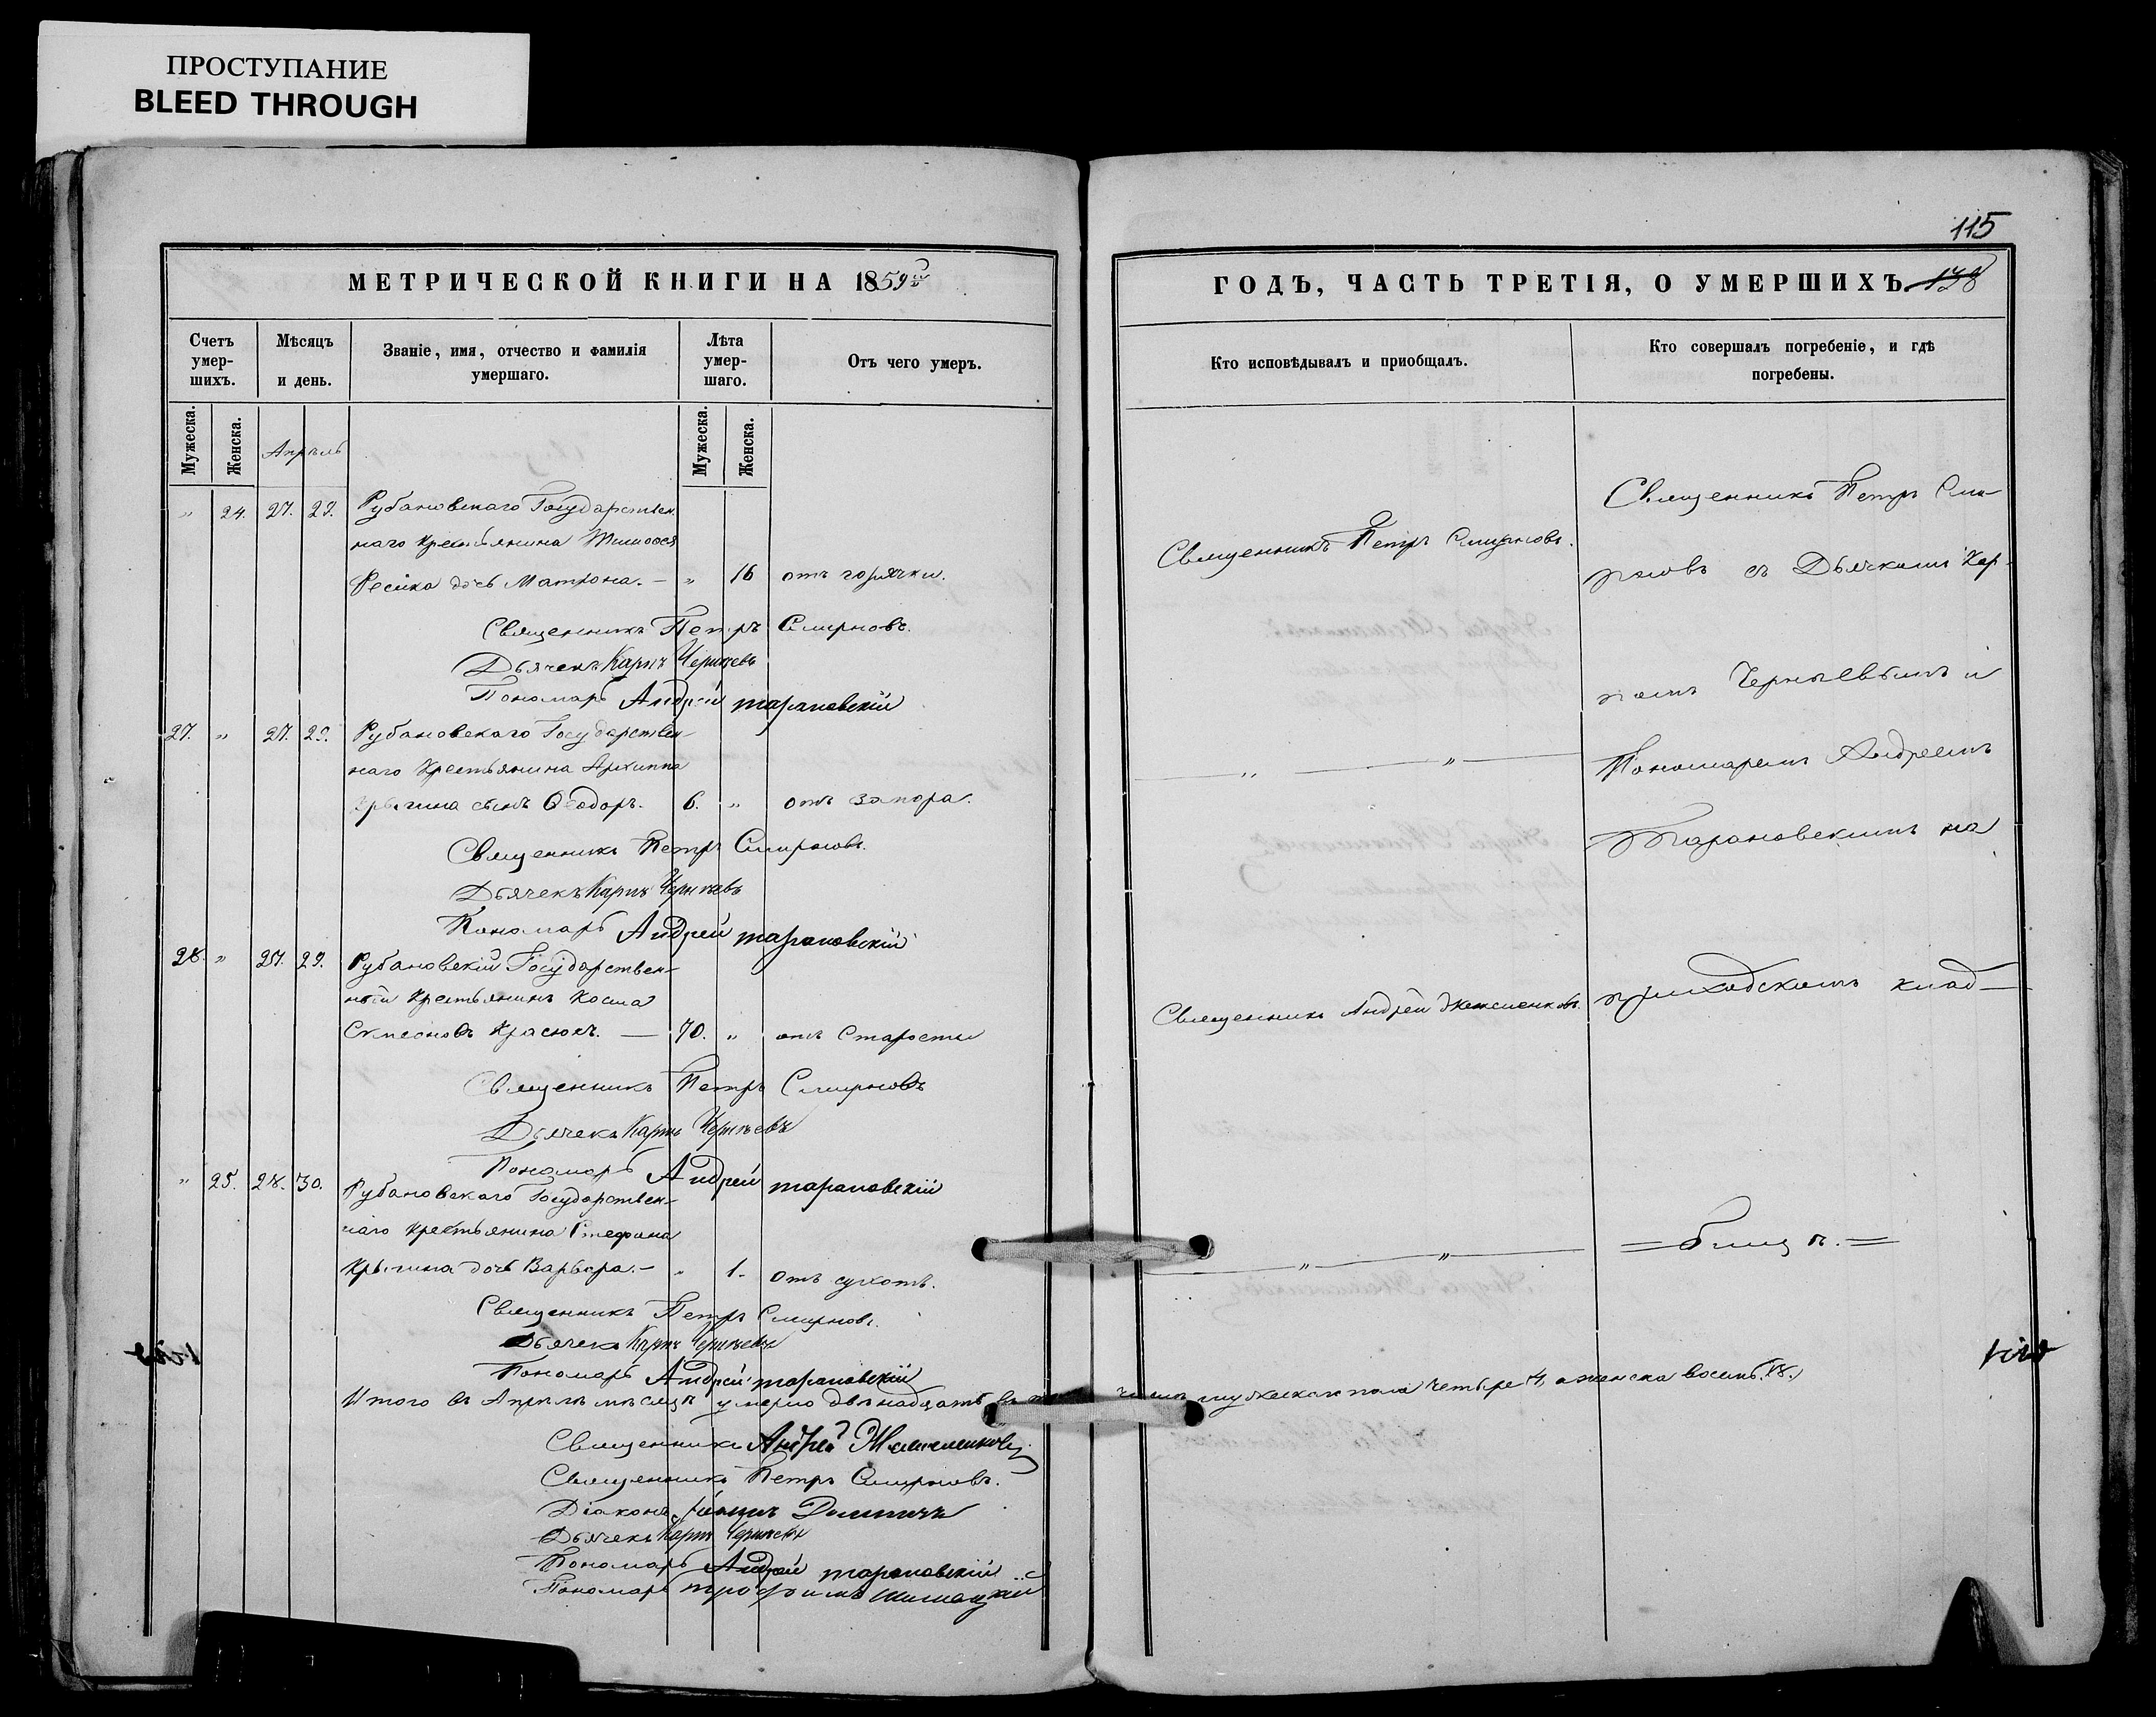 ПРОСТУПАНИЕ
BLEED THROUGH
115
МЕТРИЧЕСКОЙ КНИГИ НА 1859й
ГОДЪ, ЧАСТЬ ТРЕТІЯ, О УМЕРШИХЪ
Счетъ умер-шихъ.
Мѣсяцъ и день.
Званіе, имя, отчество и фамилія умершаго.
Лѣта умер-шаго.
Отъ чего умеръ.
Кто исповѣдывалъ и приобщалъ.
Кто совершалъ погребеніе, и гдѣ погребены.
Мужеска.
Женска.
Мужеска.
Женска.
Апрѣль
" 24. 27. 29. Рубановскаго Государствен-
наго крестьянина
дочь Матрона. — " 16 отъ горячки.
Священникъ Петръ Смирновъ.
Дьячекъ Карпъ Чернѣевъ
Пономарь Андрей Тарановскій
27. " 27. 29. Рубановскаго Государствен-
наго Крестьянина Архиппа
сынъ Ѳеодоръ. 6. " отъ запора.
Священникъ Петръ Смирновъ.
Дьячекъ Карпъ Чернѣевъ
Пономарь Андрей Тарановскій
28. " 27. 29. Рубановскій Государствен-
ный Крестьянинъ Косма
Красюкъ. — 70. " отъ Старости
Священникъ Петръ Смирновъ
Дьячекъ Карпъ Чернѣевъ
Пономарь Андрей Тарановскій
" 25. 28. 30. Рубановскаго Государствен-
наго крестьянина Стефана
дочь Варвара. — " 1. отъ сухотъ.
Священникъ Петръ Смирновъ.
Дьячекъ Карпъ Чернѣевъ
Пономарь Андрей Тарановскій
Итого въ Апрѣлѣ мѣсяцѣ умерло двѣнадцать въ числѣ мужеска пола четыре 4, а женска восемь. 8.
Священникъ Андрей
Священникъ Петръ Смирновъ.
Діаконъ
Дьячекъ Карпъ Чернѣевъ
Пономарь Андрей Тарановскій
Пономарь Трофимъ
Священникъ Петръ Смирновъ.
" "
Священникъ Андрей
" "
Священникъ Петръ Смир-
новъ съ Дьячкомъ Кар-
помъ Чернѣевымъ и
Пономаремъ Андреемъ
Тарановскимъ на
приходскомъ клад-
= бищѣ. =